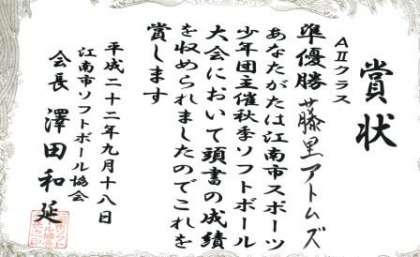 賞状
AⅡクラス
準優勝 藤里アトムズ
あなたがたは江南市スポーツ
少年団主催秋季ソフトボール
大会において頭書の成績
を収められましたのでこれを
賞します
平成二十二年九月十八日
江南市ソフトボール協会
会長 澤田和延